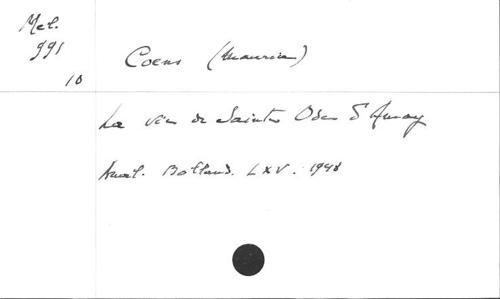 Mel.
991
10
Coens (Maurice)
La vie de Sainte Ode d'Amay
Anal. Bolland. LXV. 1947